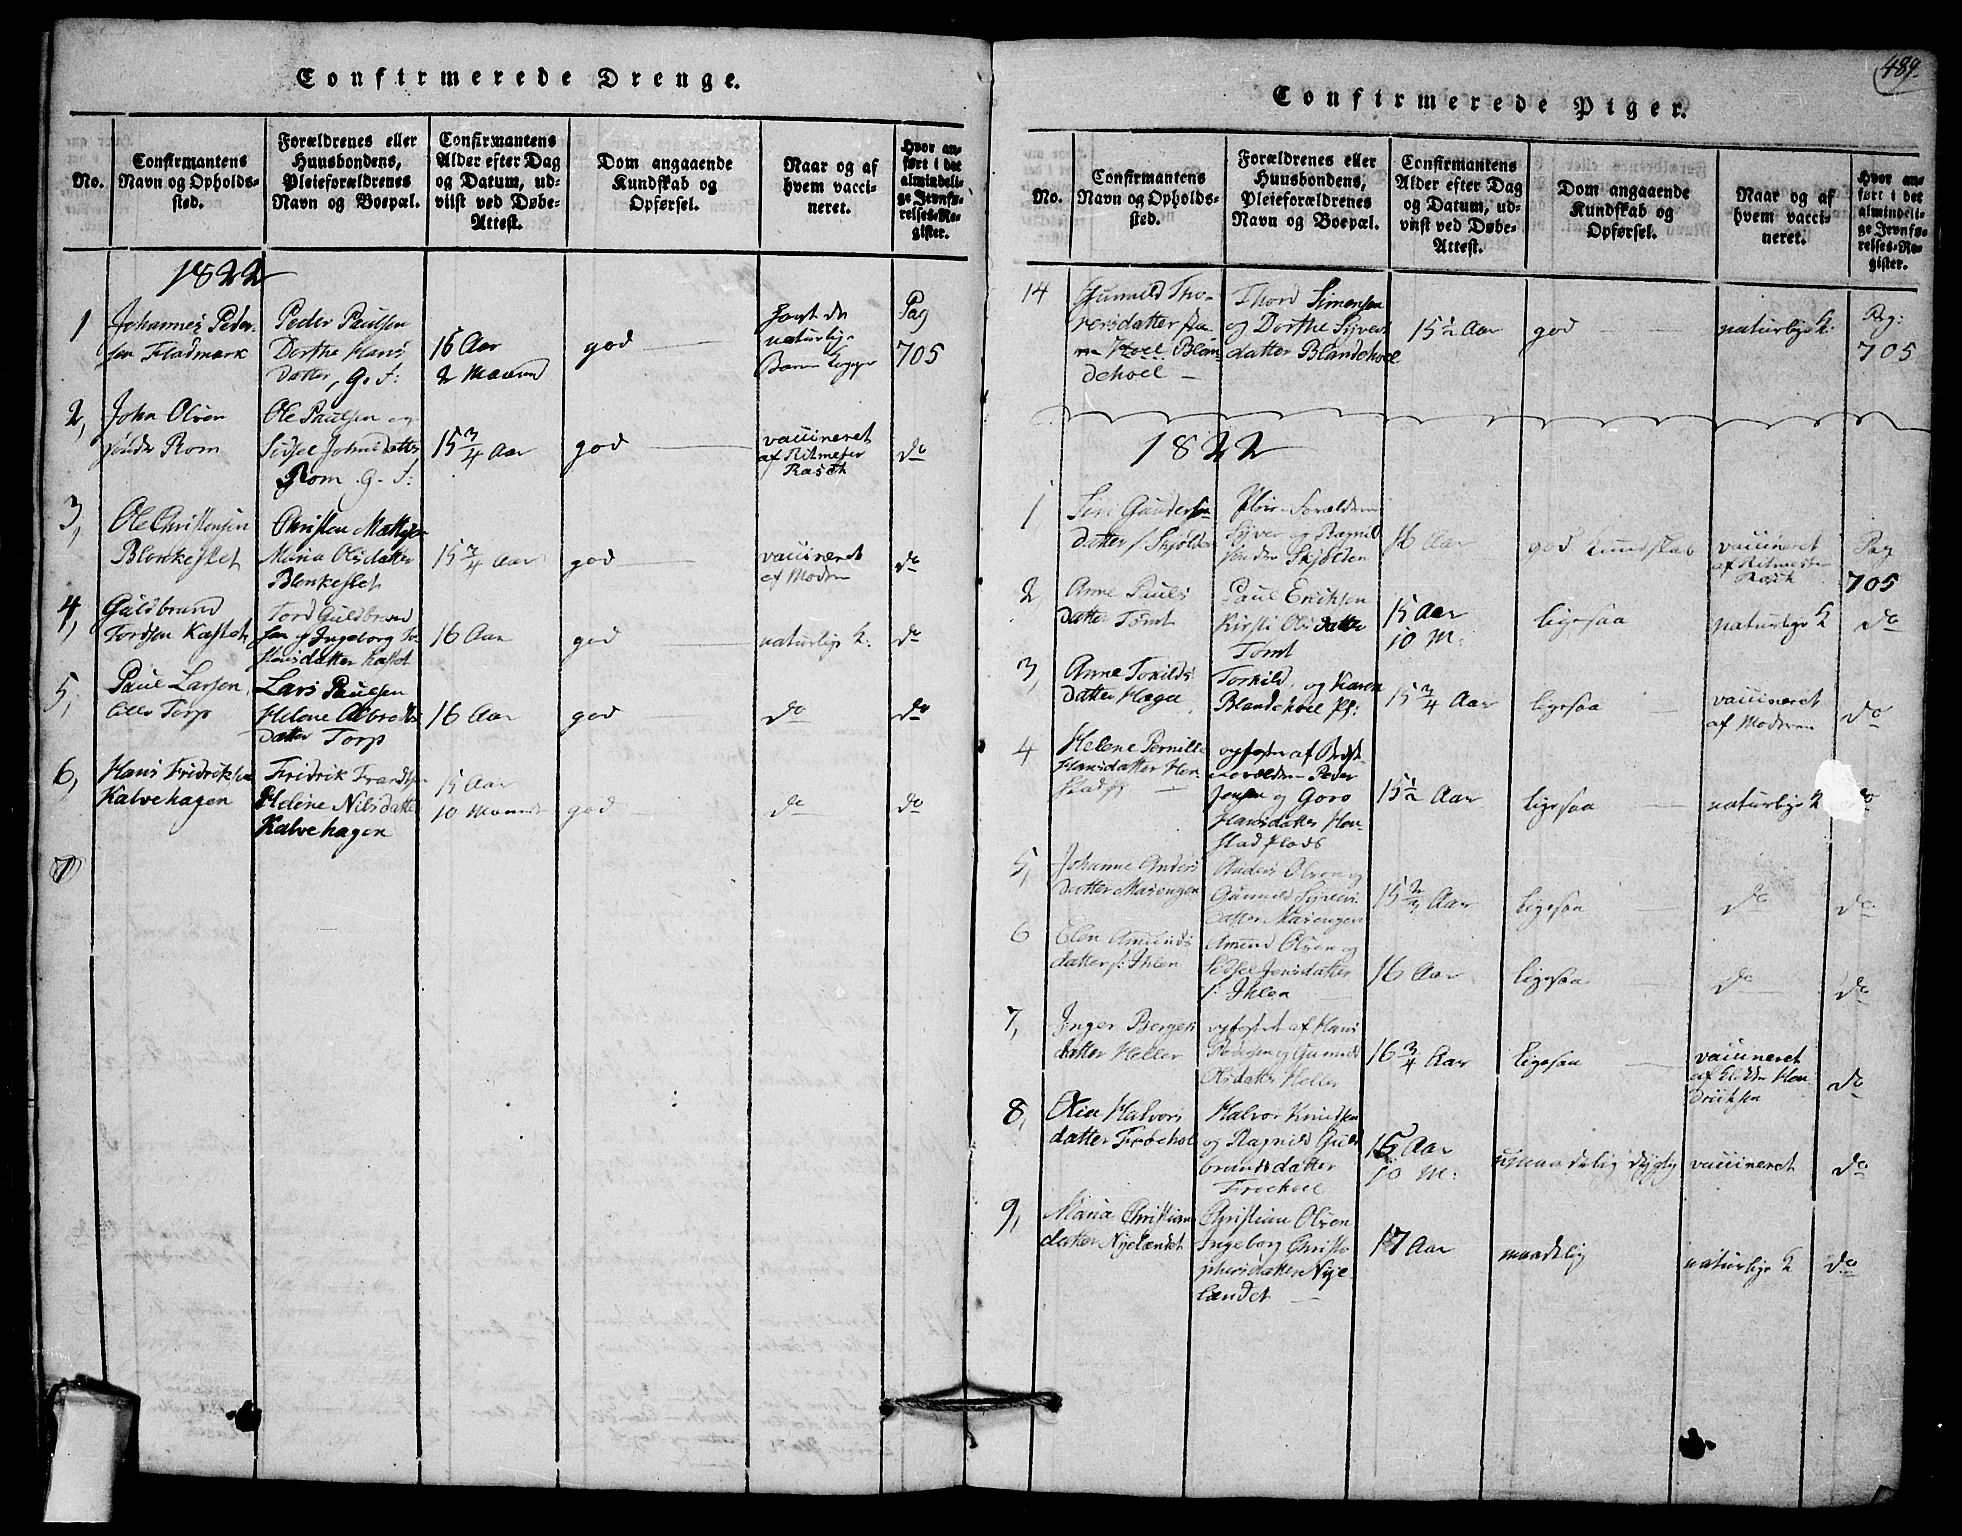 Confirmerede Drenge.
No.
Confirmantens
Navn og Opholds-
sted.
Forældrenes eller
Huusbondens,
Pleieforældrenes
Navn og Boepæl.
Confirmantens
Alder efter Dag
og Datum, ud-
viist ved Døbe-
Attest.
Dom angaaende
Kundskab og
Opførsel.
Naar og af
hvem vacci-
neret.
Hvor an-
ført i det
almindeli-
ge Jevnfø-
relses-Re-
gister.
1822
1
Johannes Peder-
sen Fladmark
Peder Paulsen
Dorthe Hans
Datter, G. F:
16 Aar
2 Maaned
god
naturlige
Pag
705
2,
John Olsen
søndr Rom
Ole Paulsen og
Sidsel Johnsdatter
Rom G. F:
15 3/4 Aar
god
vaccineret
af Ritmester
Rasch
do
3,
Ole Christensen
Blonkeslet
Christen Mathise
Maria Olsdatter
Blonkeslet
15 3/4 Aar
god
vaccineret
af Modren
do
4,
Guldbrand
Tordsen Kastet
Tord Guldbrand
sen og Ingeborg
datter Kastet
16 Aar
god
naturlige K:
do
5,
Paul Larsen
Lille Torp
Lars Paulsen
Helene Albreds
datter Torp
16 Aar
god
do
do
6,
Hans Fridriksen
Kalvehagen
Fridrik Frandsen
Helene Nilsdatter
Kalvehagen
15 Aar
10 Maaned
god
do
do
7
489.
Confirmerede Piger.
No.
Confirmantens
Navn og Opholds-
sted.
Forældrenes eller
Huusbondens,
Pleieforældrenes
Navn og Boepæl.
Confirmantens
Alder efter Dag
og Datum, ud-
viist ved Døbe-
Attest.
Dom angaaende
Kundskab og
Opførsel.
Naar og af
hvem vacci-
neret.
Hvor an-
ført i det
almindeli-
ge Jevnfø-
relses-Re-
gister.
14
Gunnild Tho-
rersdatter
Blan-
dehoel
Thord Simensen
og Dorthe Syvers
datter Blandehoel
15 1/2 Aar
god
naturlige K:
Pag:
705
1822
1
Siri Gunders
datter Skjølden
Pleie-Forældrene
Syver og Ragnild
søndre Skjølden
16 Aar
god Kundskab
vaccineret
af Ritmester
Rasch
Pag
705
2,
Anne Pauls
datter Tomt
Paul Eriksen
Kirsti Olsdatter
Tomt
15 Aar
10 M:
ligesaa
naturlige K
do
3,
Anne Torkilds
datter Haga
Torkild og Karen
Blandehoel Pf:
15 3/4 Aar
ligesaa
vaccineret
af Modren
do
4
Helene Pernille
Hansdatter Hon
stad
opfostr af Beste
forældrene Peder
Jensen og Goro
Hansdatter Hon-
stad
15 1/2 Aar
ligesaa
naturlige K
do
5,
Johanne Anders
datter Masengen
Anders Olsen og
Gunnild Syvers
datter Masengen
15 2/3 Aar
ligesaa
do
do
6
Elen Amunds
datter s: Ihlen
Amund Olsen og
Sidsel Jensdatter
s: Ihlen
16 Aar
ligesaa
do
do
7,
Inger Bergers
datter Heller
opfostret af Hans
Pedersen og Gunnild
Olsdatter Heller
16 3/4 Aar
ligesaa
vaccineret
af
driksen
do
8,
Halvors
datter Froehoel
Halvor Knudsen
og Ragnild Guld
brandsdatter
Froehoel
15 Aar
10 M:
umaadelig dygtig
vaccineret
do
9,
Maria Christians
datter Nyelændet
Christian Olsen
Ingeborg Christo
phersdatter Nye
lændet
17 Aar
maadelig
naturlige K
do